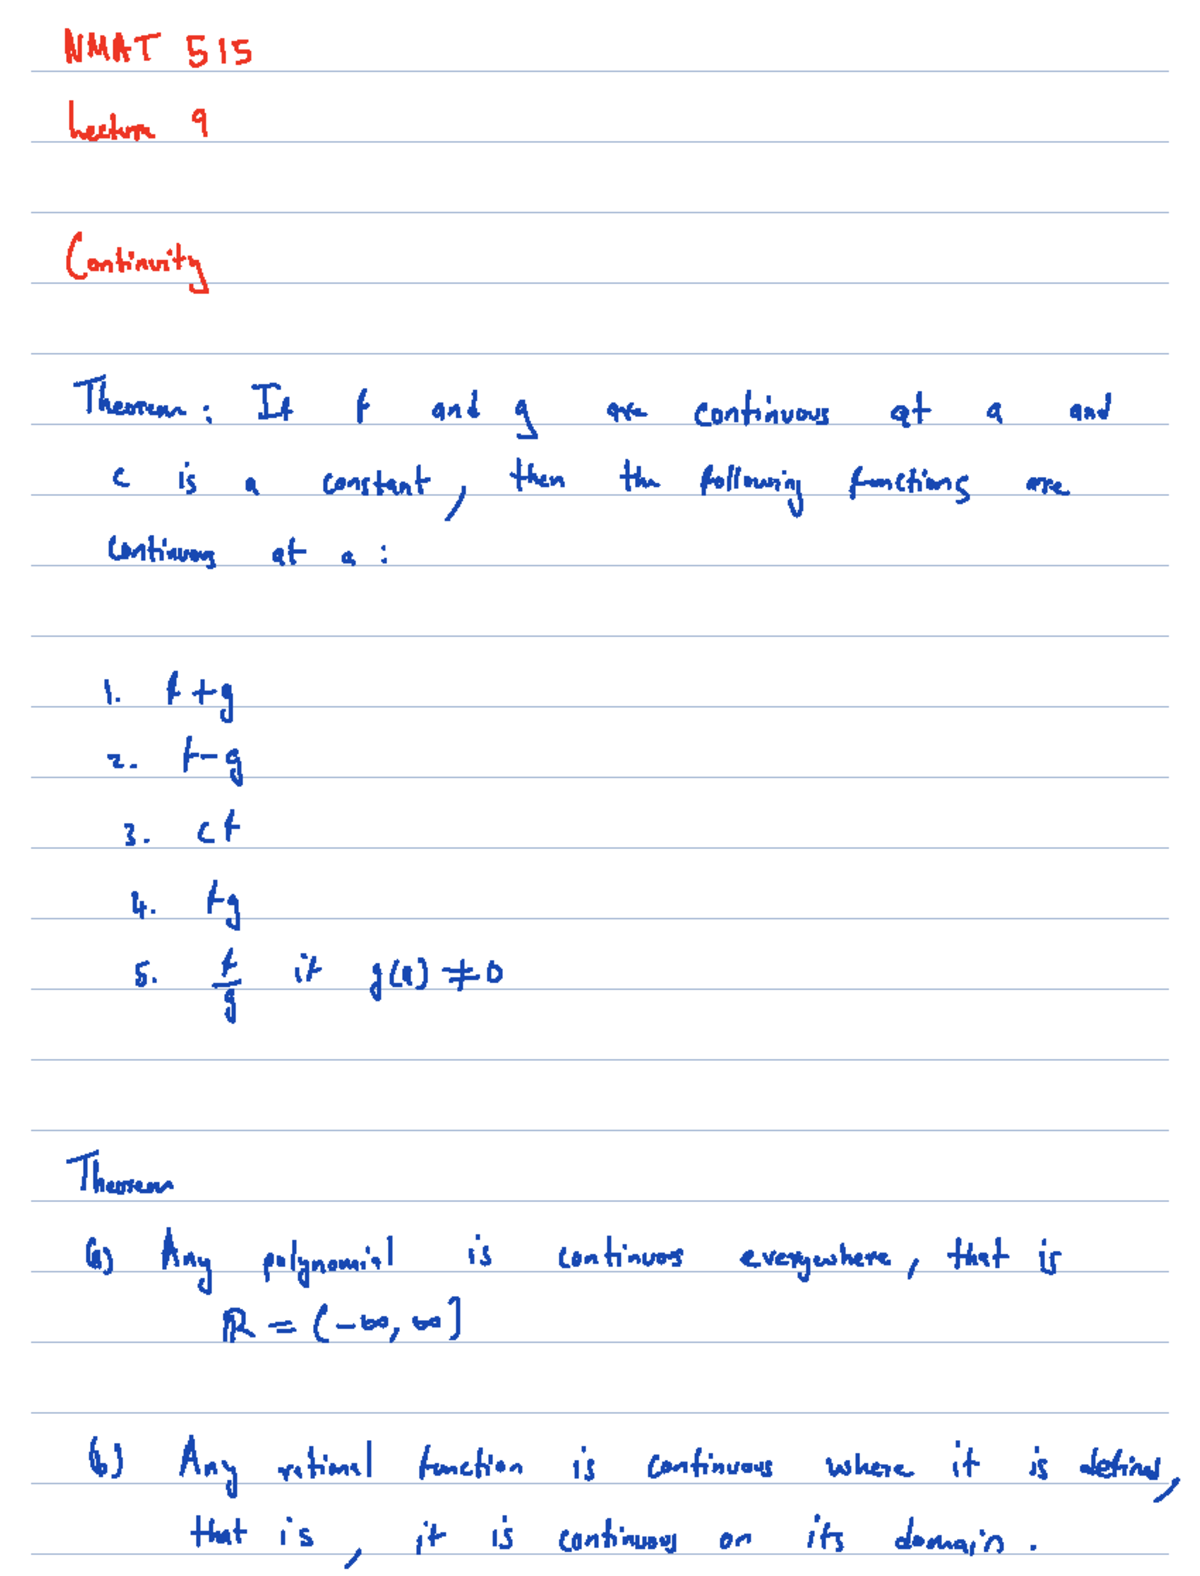 NMAT 515
Lecture 9
Continuity
Theorem: If f and g are continuous at a and
c is a constant, then the following functions are
continuous at a:
1. f+g
2. f-g
3. cf
4. fg
5. f/g if g(a) ≠ 0
Theorem
(a) Any polynomial is continuous everywhere, that is
ℝ = (-∞, ∞]
(b) Any rational function is continuous where it is defined,
that is, it is continuous on its domain.